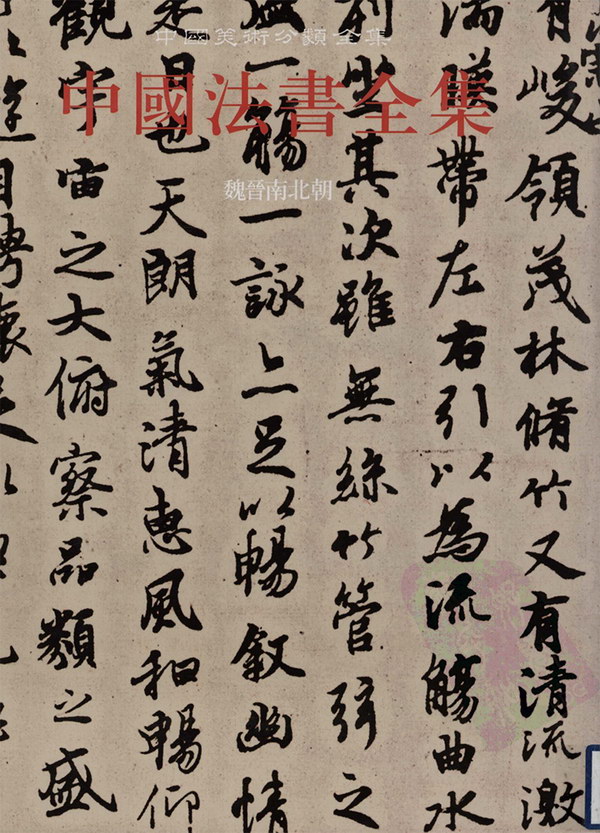 中國美術分類全集
中國法書全集
魏晉南北朝
有峻領茂林脩竹又有清流激
湍暎帶左右引以為流觴曲水
列坐其次雖無絲竹管弦之
盛一觴一詠亦足以暢敘幽情
是日也天朗氣清惠風和暢仰
觀宇宙之大俯察品類之盛